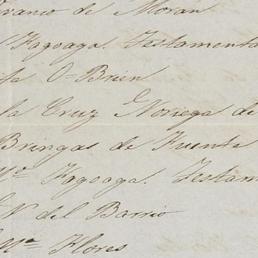 Franco de Moran
Fagoaga. Testamenta
O-Brien
la Cruz Noriega de
Bringas de Fuente
Fagoaga. Testam
N del Barrio
Ma Flores